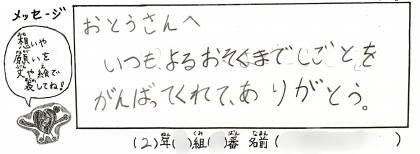 メッセージ
想いや
願いを
文や絵で
表してね!
おとうさんへ
いつも、よるおそくまでしごとを
がんばってくれて、ありがとう。
(2)年( )組( )番 名前( )